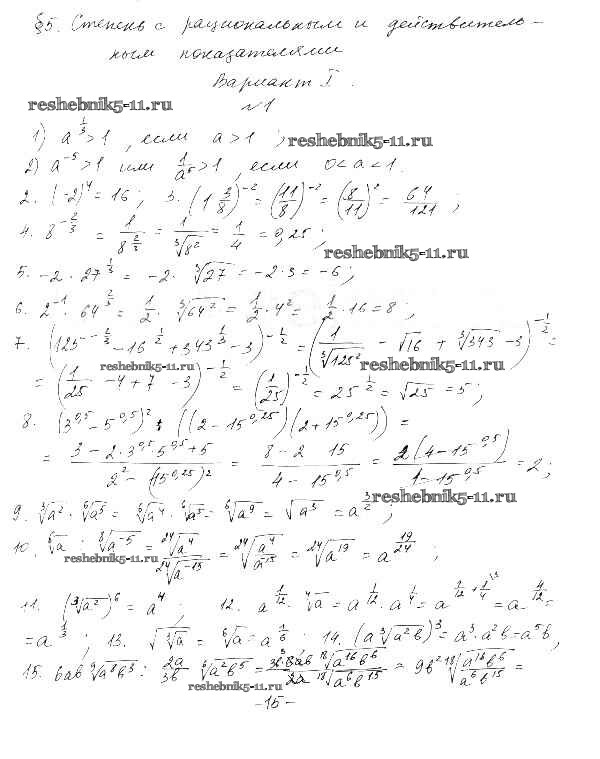 §5. Степень с рациональным и действитель-
ным показателями
Вариант I.
reshebnik5-11.ru №1
1) a^{1/3} > 1, если a > 1; reshebnik5-11.ru
2) a^{-5} > 1 или 1/a^5 > 1, если 0 < a < 1.
2. (-2)^4 = 16; 3. (1 3/8)^{-2} = (11/8)^{-2} = (8/11)^2 = 64/121;
4. 8^{-2/3} = 1/8^{2/3} = 1/∛8² = 1/4 = 0,25;
reshebnik5-11.ru
5. -2 · 27^{1/3} = -2 · ∛27 = -2 · 3 = -6;
6. 2^{-1} · 64^{2/3} = 1/2 · ∛64² = 1/2 · 4² = 1/2 · 16 = 8;
7. (125^{-2/3} - 16^{1/2} + 343^{1/3} - 3)^{-1/2} = (1/∛125² - √16 + ∛343 - 3)^{-1/2} =
reshebnik5-11.ru reshebnik5-11.ru
= (1/25 - 4 + 7 - 3)^{-1/2} = (1/25)^{-1/2} = 25^{1/2} = √25 = 5;
8. (3^{0,5} - 5^{0,5})² : ((2 - 15^{0,25})(2 + 15^{0,25})) =
= (3 - 2·3^{0,5}·5^{0,5} + 5)/(2² - (15^{0,25})²) = (8 - 2 15)/(4 - 15^{0,5}) = 2(4 - 15^{0,5})/(4 - 15^{0,5}) = 2;
reshebnik5-11.ru
9. ∛a² · ⁶√a⁵ = ⁶√a⁴ · ⁶√a⁵ = ⁶√a⁹ = √a³ = a^{3/2};
10. ⁶√a : ⁸√a^{-5} = ²⁴√a⁴/²⁴√a^{-15} = ²⁴√(a⁴/a^{15}) = ²⁴√a^{19} = a^{19/24};
reshebnik5-11.ru
11. (∛a²)⁶ = a⁴; 12. a^{1/12} · ⁴√a = a^{1/12} · a^{1/4} = a^{1/12 + 1/4} = a^{4/12} =
= a^{1/3}; 13. √∛a = ⁶√a = a^{1/6}; 14. (a ∛a²b)³ = a³·a²b = a⁵b,
15. 6ab ⁹√a⁸b³ : 2a/3b ⁶√a²b⁵ = 3b·6ab ¹⁸√a¹⁶b⁶/2a ¹⁸√a⁶b¹⁵ = 9b² ¹⁸√(a¹⁶b⁶/a⁶b¹⁵) =
reshebnik5-11.ru
-15-